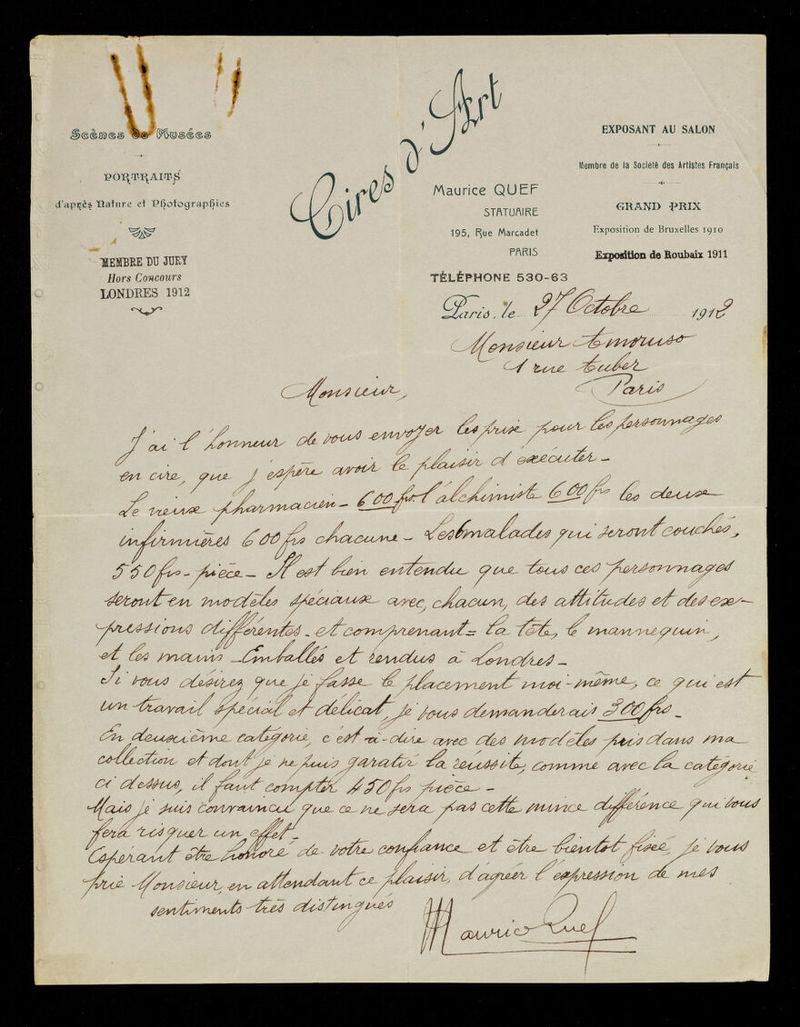 Scènes de Musées
PORTRAITS
d'après Nature et Photographies
MEMBRE DU JURY
Hors Concours
LONDRES 1912
Cires d'Art
Maurice QUEF
STATUAIRE
195, Rue Marcadet
PARIS
TÉLÉPHONE 530-63
EXPOSANT AU SALON
Membre de la Société des Artistes Français
GRAND PRIX
Exposition de Bruxelles 1910
Exposition de Roubaix 1911
Paris, le 27 Octobre 1912
Monsieur Amoruso
1 rue Auber
Paris
Monsieur,
J'ai l'honneur de vous envoyer les prix pour les personnages
en cire, que j'espère avoir le plaisir d'exécuter -
Le vieux pharmacien - 600 frs l'alchimiste 600 frs les deux
infirmières 600 frs chacune - Les 6 malades qui seront couchés,
550 frs - pièce - Il est bien entendu que tous ces personnages
seront en modèles spéciaux avec, chacun, des attitudes et des ex-
pressions différentes - et comprenant = la tête, le mannequin,
et les mains - Emballés et rendus à Londres -
Si vous désirez que je fasse le placement moi-même, ce qui est
un travail spécial et délicat, je vous demanderais 300 frs -
En deuxième catégorie, c'est-à-dire avec des modèles pris dans ma
collection et dont je ne puis garatir la réussite, comme avec la catégorie
ci dessus, il faut compter 450 frs pièce -
Mais je suis convaincu que ce ne sera pas cette mince différence qui vous
fera risquer un effet -
Espérant être honoré de votre confiance et être bientôt fixé, je vous
prie Monsieur, en attendant ce plaisir, d'agréer l'expression de mes
sentiments très distingués
Maurice Quef